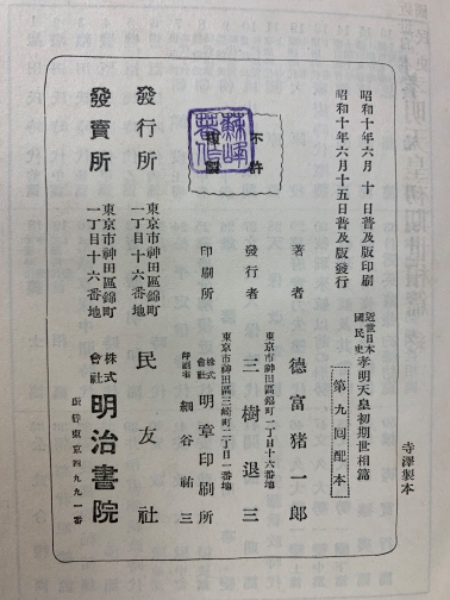 昭和十年六月十日普及版印刷
昭和十年六月十五日普及版發行
近世日本
國民史
孝明天皇初期世相篇
第九回配本
不許
複製
蘇峰
著作
著者
德富猪一郎
東京市神田區錦町一丁目十六番地
發行者
三樹退三
東京市神田區三崎町二丁目一番地
印刷所
株式
會社
明章印刷所
印刷者
細谷祐三
發行所
東京市神田區錦町
一丁目十六番地
民友社
發賣所
東京市神田區錦町
一丁目十六番地
株式
會社
明治書院
振替東京四九九一番
寺澤製本